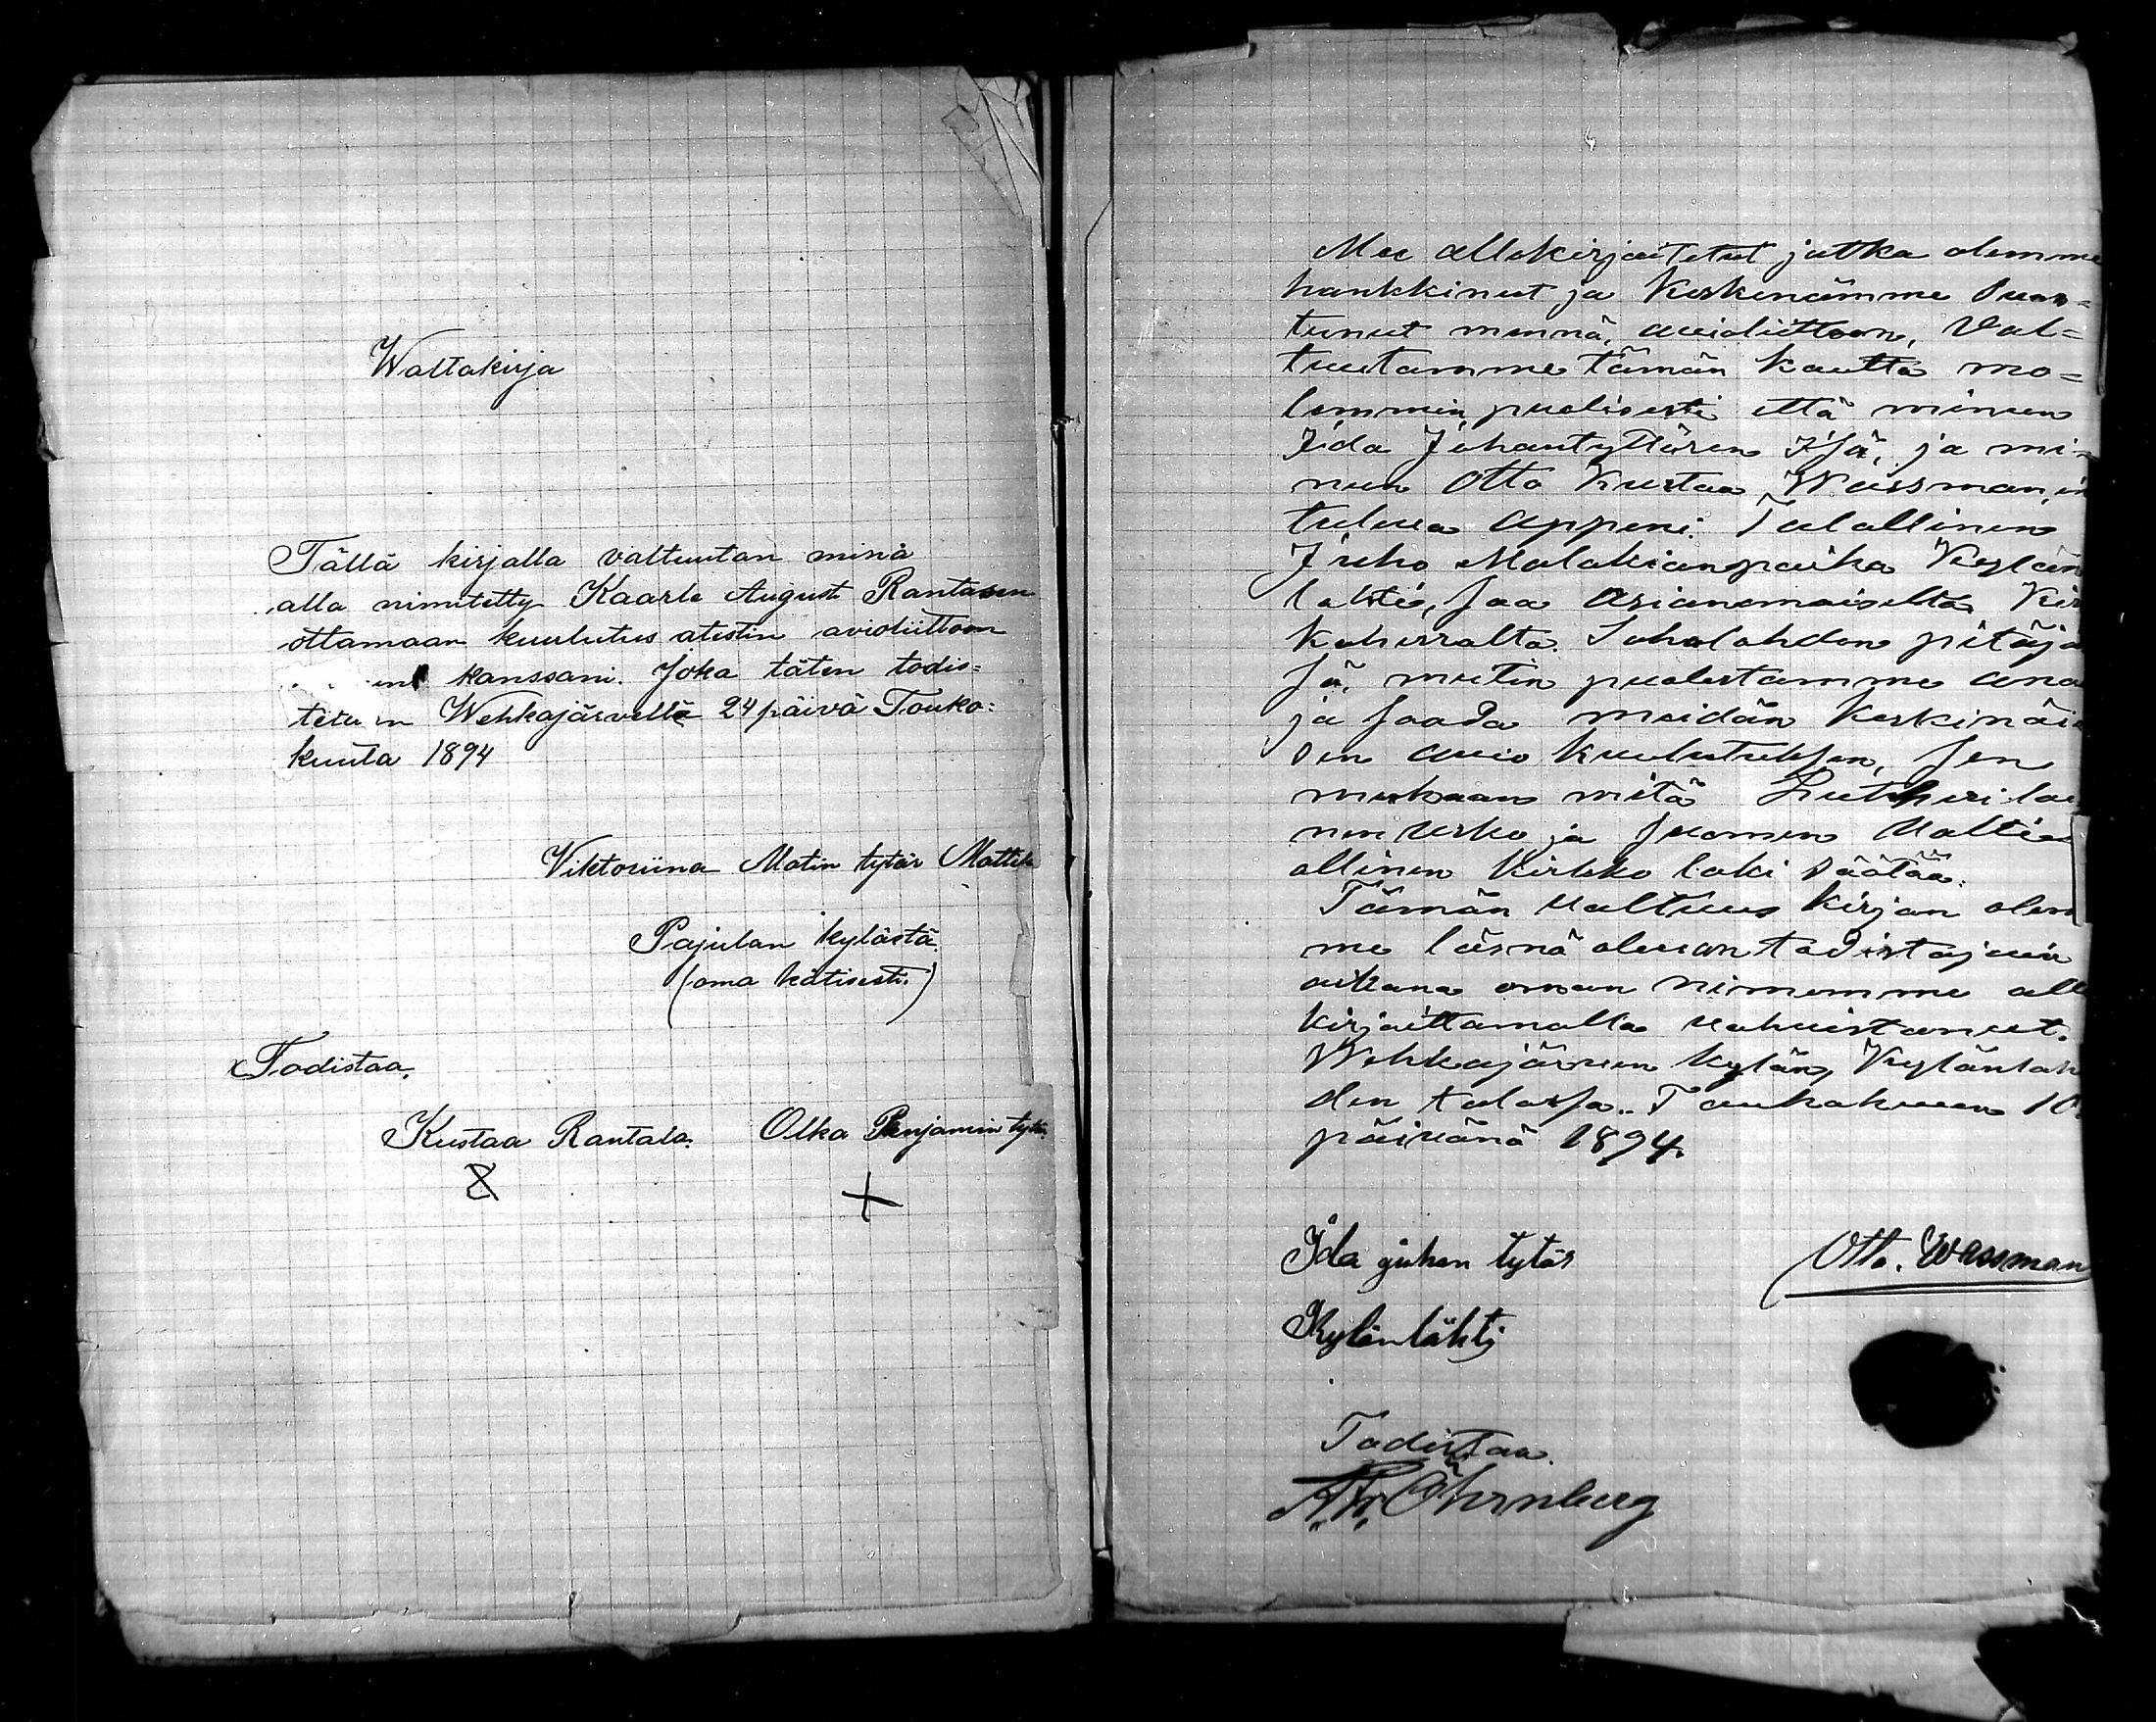 Waltakirja
Tällä kirjalla valtuutan minä
alla nimitetty Kaarle August Rantasen
ottamaan kuulutus atestin avioliittoon
kanssani. Joka täten todis=
teta n Wehkajärvellä 24 päivä Touko=
kuuta 1894
Viktoriina Matin tytär
Pajulan kylästä
(oma kätisesti.)
Todistaa,
Kustaa Rantala. Olka Penjamin tytär
Mee allekirjoitetut jotka olemme
hankkineet ja Keskenämme Suos=
tunut mennä, avioliittoon, Val=
tuutamme tämän kautta mo=
lemmin puolisesti että minun
Ida Juhantyttären Isä, ja mi-
nun Otto Kustaa Wassman, in
tuleva appeni. Talallinen
Juho Malakianpoika Kylän
lahti, saa Asianomaiselta Kir
koherralta. Sahalahden pitäjä
sä, meitin puolestamme ano
ja saada meidän Keskinäi
sen avio kuulutuksen, sen
mukaan mitä Lutheri lai
nen Usko ja Suomen Valti
allinen Kirkko laki säätää.
Tämän Valtuus Kirjan olem
me läsnä olevan todistajain
aikana oman nimemme all
kirjoittamalla vahvistanut.
Wehkajärven kylän, Kylänlah
den talossa.. Toukokuun 10
päivänä 1894.
Ida juhan tytär Otto. Wassman
Kylänlähti
Todistaa.
Öhrnberg